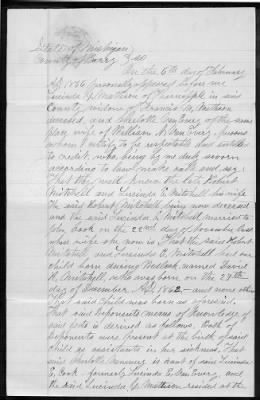 State of Michigan
County of Barry } SS
On the 6th day of February
AD 1866 personally appeared before me
Lucinda G. Mattison of Thornapple in said
County, widow of Francis M. Mattison
deceased, and Charlotte Van Every of the same
place wife of William H. Van Every, persons
whom I certify to be respectable and entitled
to credit, who being by me duly sworn
according to law, make oath and say
That they well knew the late Robert
Mitchell and Lucinda E. Mitchell his wife
the said Robert Mitchell being now deceased
and the said Lucinda E. Mitchell married to
John Cook on the 22nd day of November last
whose wife she now is That the said Robert
Mitchell and Lucinda E. Mitchell had one
child born during wedlock named
Mitchell, who was born on the 29th
day of December AD 1862 and none other
that said child was born as aforesaid.
That said deponents means of knowledge of
said facts is derived as follows, both of
deponents were present at the birth of said
child as assistants in her sickness. That
said Charlotte Van Every is Aunt of said Lucinda
E. Cook formerly Lucinda E. Van Every, and
the said Lucinda G. Mattison resided at the